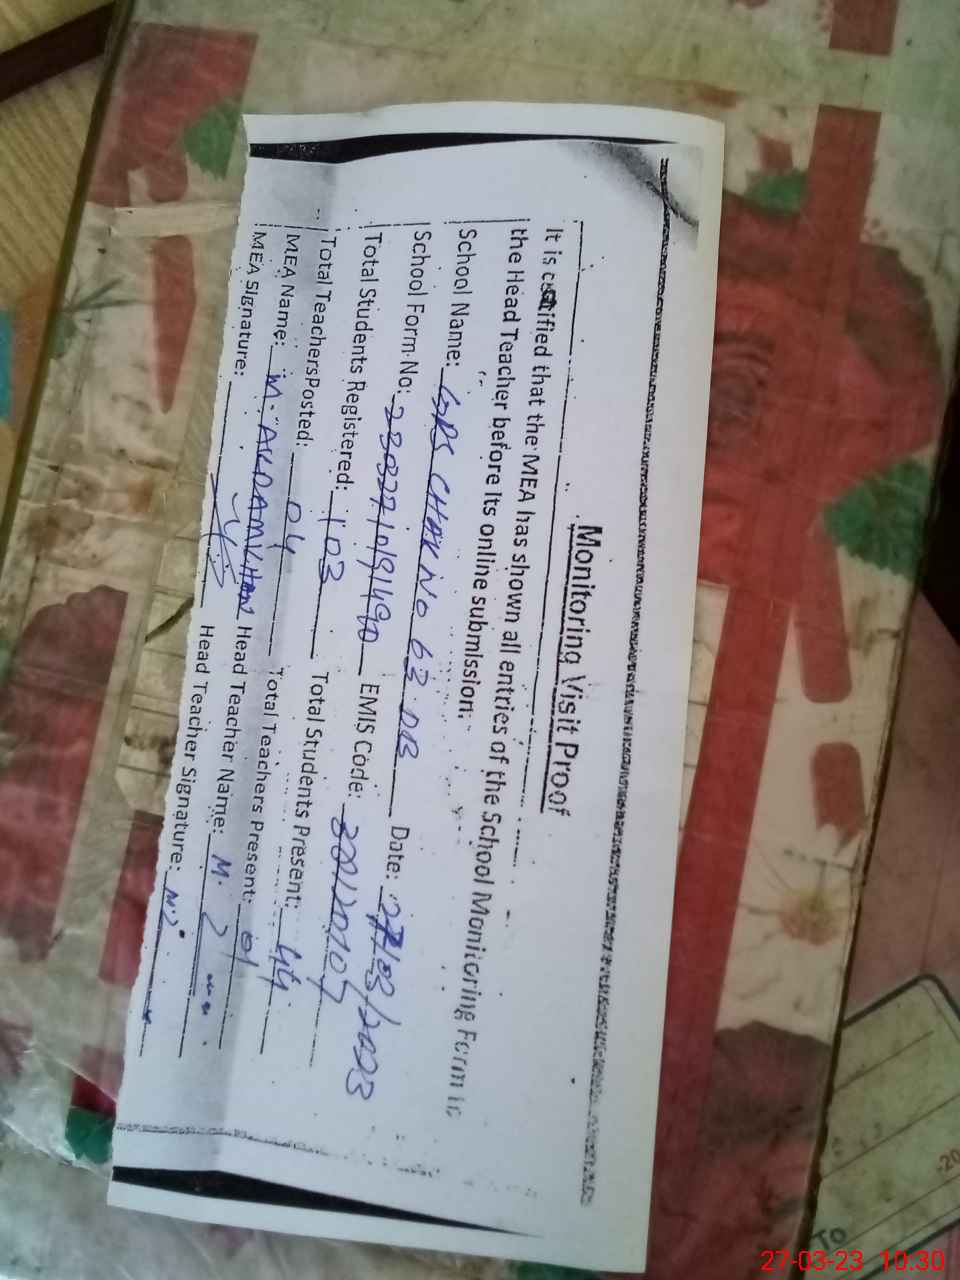 Monitoring Visit Proof
It is certified that the MEA has shown all entries of the School Monitoring Form to
the Head Teacher before its online submission.
School Name: GPS CHAK NO 63 DB Date: 27/03/2023
School Form No: EMIS Code:
Total Students Registered: 103 Total Students Present: 44
Total Teachers Posted: 04 Total Teachers Present: 01
MEA Name: M. AKRAM Khan Head Teacher Name: M.
MEA Signature: Head Teacher Signature:
To
-20
27-03-23 10:30